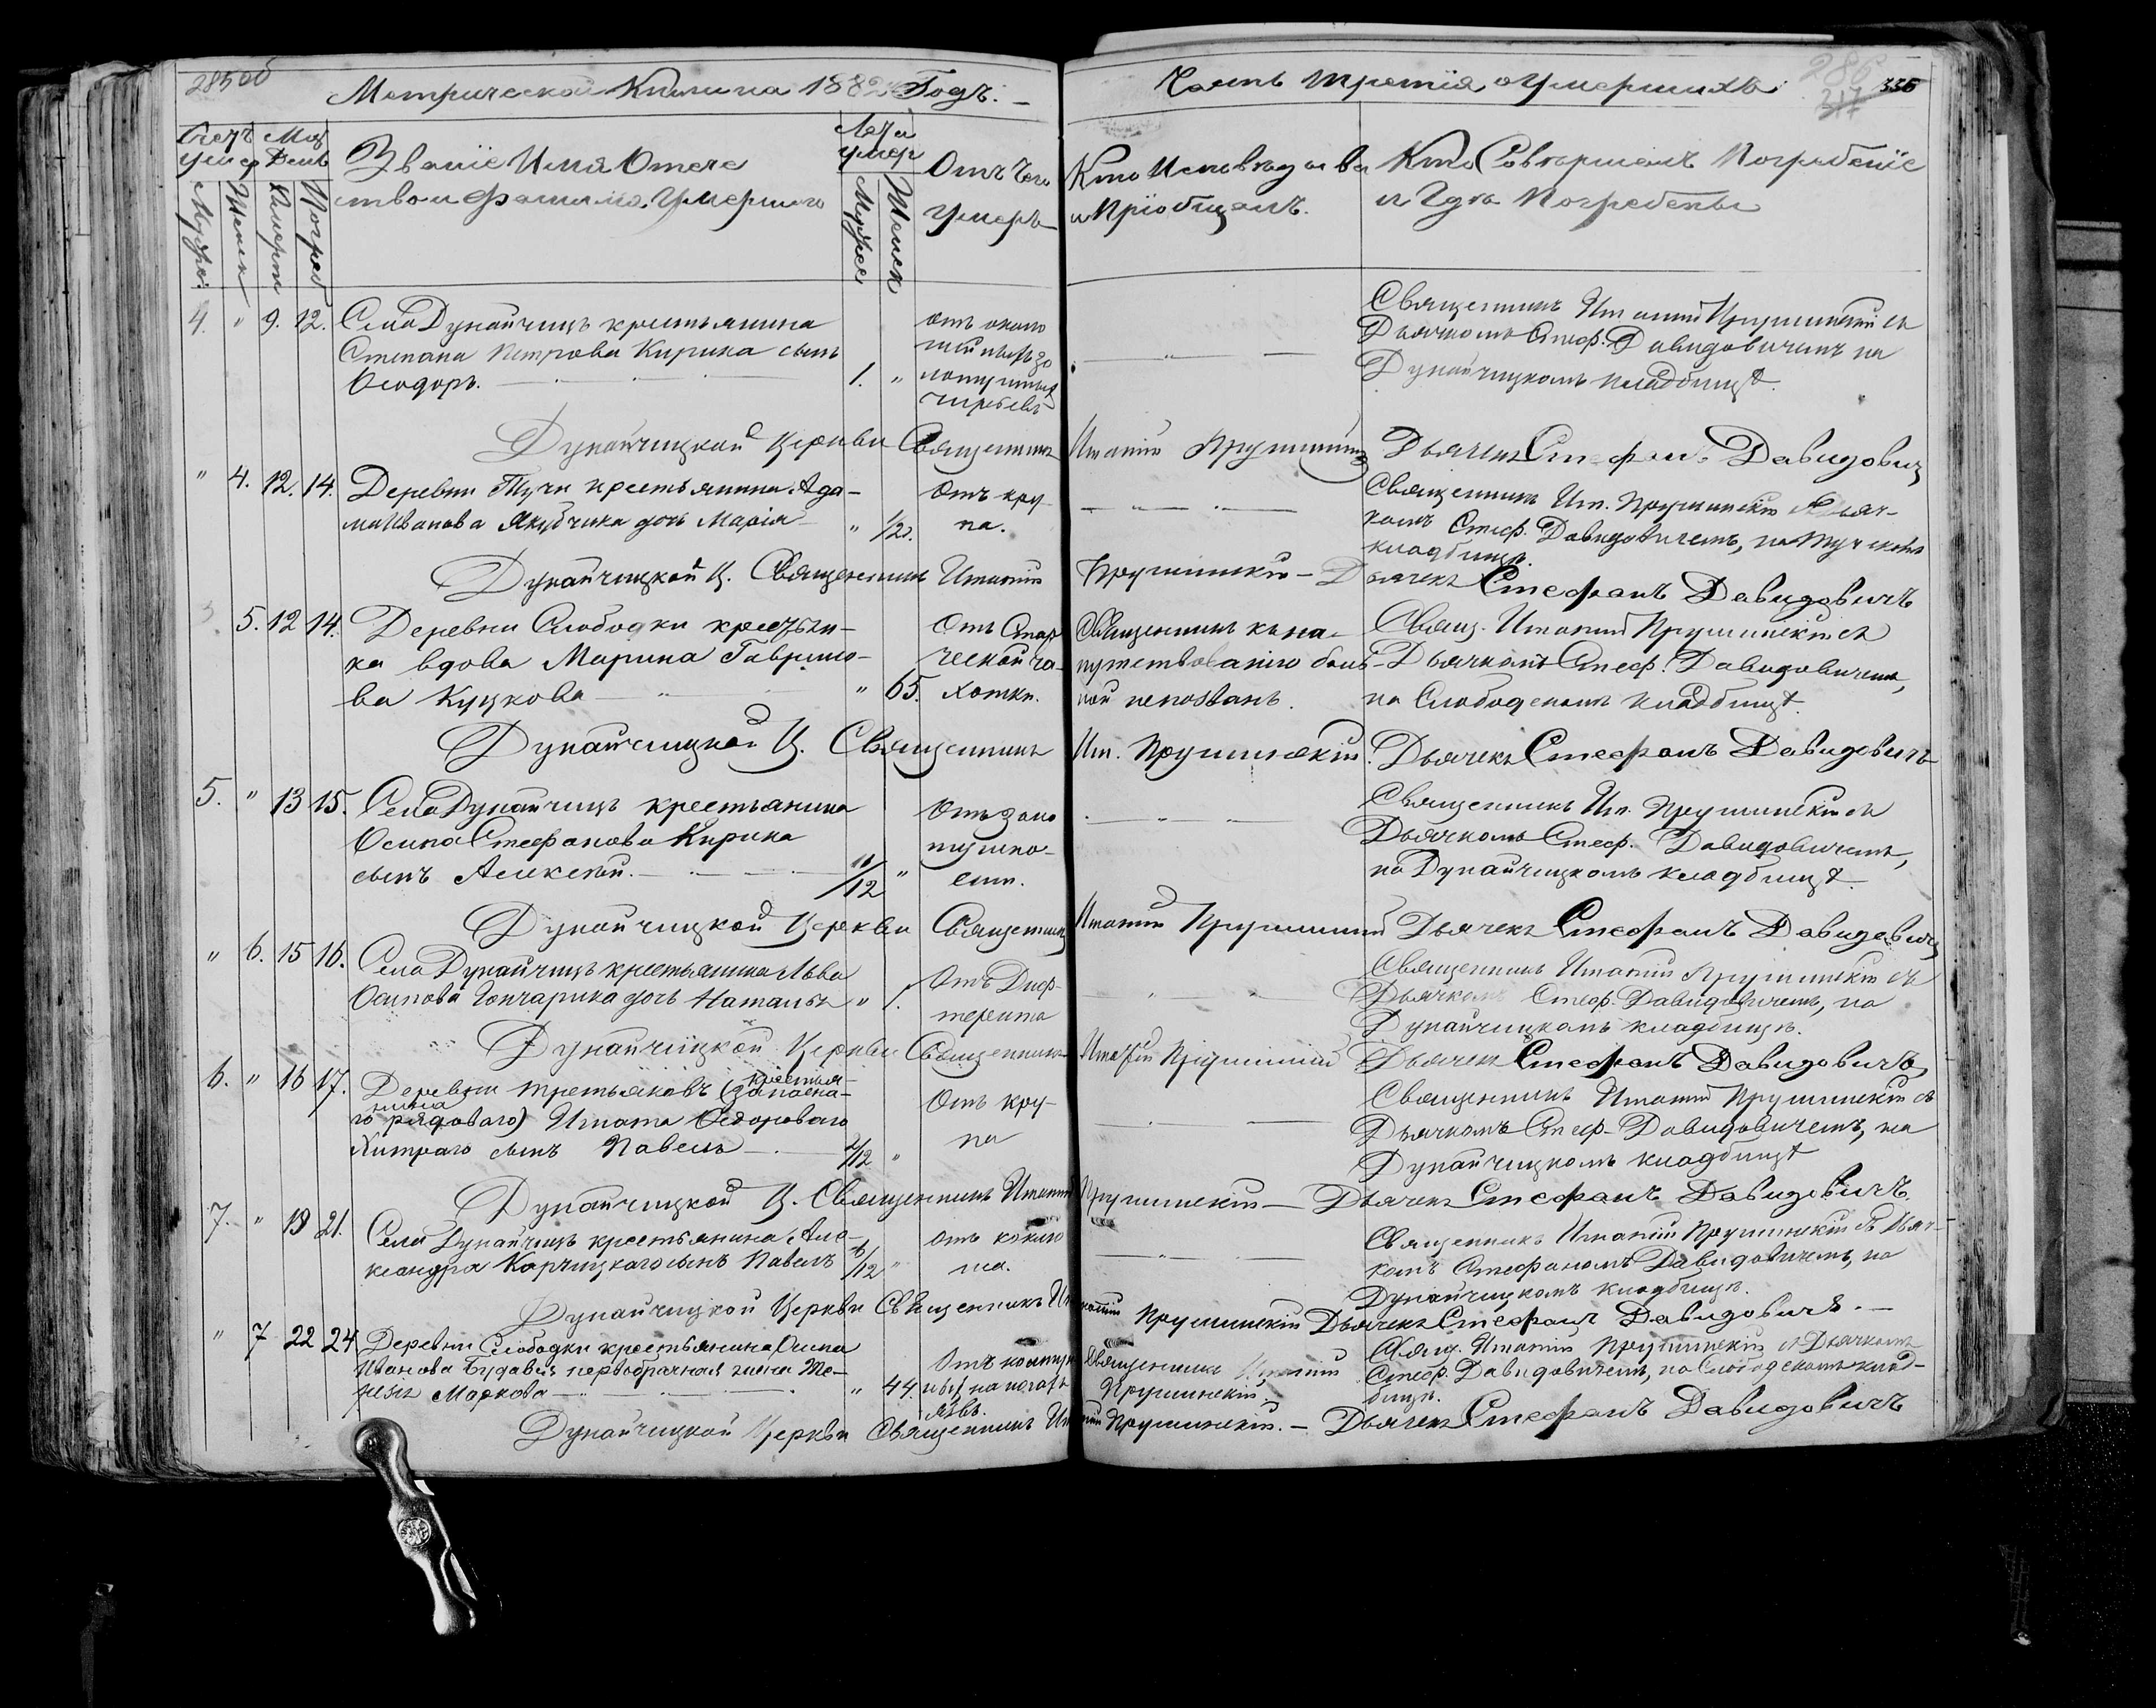 285 об
Метрической Книги на 1882 Годъ.
Часть третія о умершихъ
286
317
336
Счетъ умер
Мѣс День
Званіе Имя Отече
ство и фамилія Умершаго
Лета умер
Отъ чего
умеръ
Кто Исповѣдыва
и Пріобщалъ.
Кто Совершалъ Погребеніе
и Гдѣ Погребены
Мужес
Женск
Смерти
Погреб
Мужес
Женск
4. " 9. 12. Села Дунайчицъ крестьянина
Степана Петрова Кирика сынъ
Ѳеодоръ. 1. "
отъ
Священникъ Игнатій Прушинскій съ
Дьячкомъ Стеф. Давидовичемъ на
Дунайчицкомъ кладбищѣ.
Дунайчицкой Церкви Священникъ Игнатій Прушинскій Дьячекъ Стефанъ Давидовичъ
" 4. 12. 14. Деревни Тучи крестьянина Ада-
ма Иванова Якубчика дочь Марія " 1/2
Отъ кру-
па.
Священникъ Игн. Прушинскій съ Дьяч-
комъ Стеф. Давидовичемъ, на
кладбищѣ.
Дунайчицкой Ц. Священникъ Игнатій Прушинскій – Дьячекъ Стефанъ Давидовичъ
5. 12 14. Деревни Слободки крестьян-
ка вдова Марина Гаврило-
ва Куцкова " 65.
Отъ Стар
ческой ча-
хотки.
Священникъ къ на-
путствованію боль-
ной непозванъ.
Свящ. Игнатій Прушинскій съ
Дьячкомъ Стеф. Давидовичемъ,
на Слободскомъ кладбищѣ.
Дунайчицкой Ц. Священникъ Игн. Прушинскій. Дьячекъ Стефанъ Давидовичъ
5. " 13 15. Села Дунайчицъ крестьянина
Осипа Стефанова Кирика
сынъ Алексѣй. 10/12 "
Отъ золо
тушно-
сти.
Священникъ Игн. Прушинскій съ
Дьячкомъ Стеф. Давидовичемъ,
на Дунайчицкомъ кладбищѣ.
Дунайчицкой Церкви Священникъ Игнатій Прушинскій Дьячекъ Стефанъ Давидовичъ
" 6. 15 16. Села Дунайчицъ крестьянина Льва
Осипова Гончарика дочь Наталья " 1.
Отъ Диф-
терита
Священникъ Игнатій Прушинскій съ
Дьячкомъ Стеф. Давидовичемъ, на
Дунайчицкомъ кладбищѣ.
Дунайчицкой Церкви Священникъ Игнатій Прушинскій Дьячекъ Стефанъ Давидовичъ
6. " 16 17. Деревни Третьяковъ (запасна-
крестья-
нина
го рядоваго) Игната Ѳедорова
Хитраго сынъ Павелъ /12 "
Отъ кру-
па
Священникъ Игнатій Прушинскій съ
Дьячкомъ Стеф. Давидовичемъ, на
Дунайчицкомъ кладбищѣ
Дунайчицкой Ц. Священникъ Игнатій Прушинскій – Дьячекъ Стефанъ Давидовичъ
7. " 19 21. Села Дунайчицъ крестьянина Але-
ксандра Корчицкаго сынъ Павелъ 6/12 "
отъ коклю
ша.
Священникъ Игнатій Прушинскій съ Дьяч-
комъ Стефаномъ Давидовичемъ, на
Дунайчицкомъ кладбищѣ.
Дунайчицкой Церкви Священникъ Игнатій Прушинскій Дьячекъ Стефанъ Давидовичъ.
" 7 22 24 Деревни Слободки крестьянина Осипа
Иванова первобрачная жена
Маркова " 44.
Отъ на ногахъ
язвъ.
Священникъ Игнатій
Прушинскій.
Свящ. Игнатій Прушинскій съ Дьячкомъ
Стеф. Давидовичемъ, на Слободскомъ клад-
бищѣ.
Дунайчицкой Церкви Священникъ Игнатій Прушинскій. – Дьячекъ Стефанъ Давидовичъ